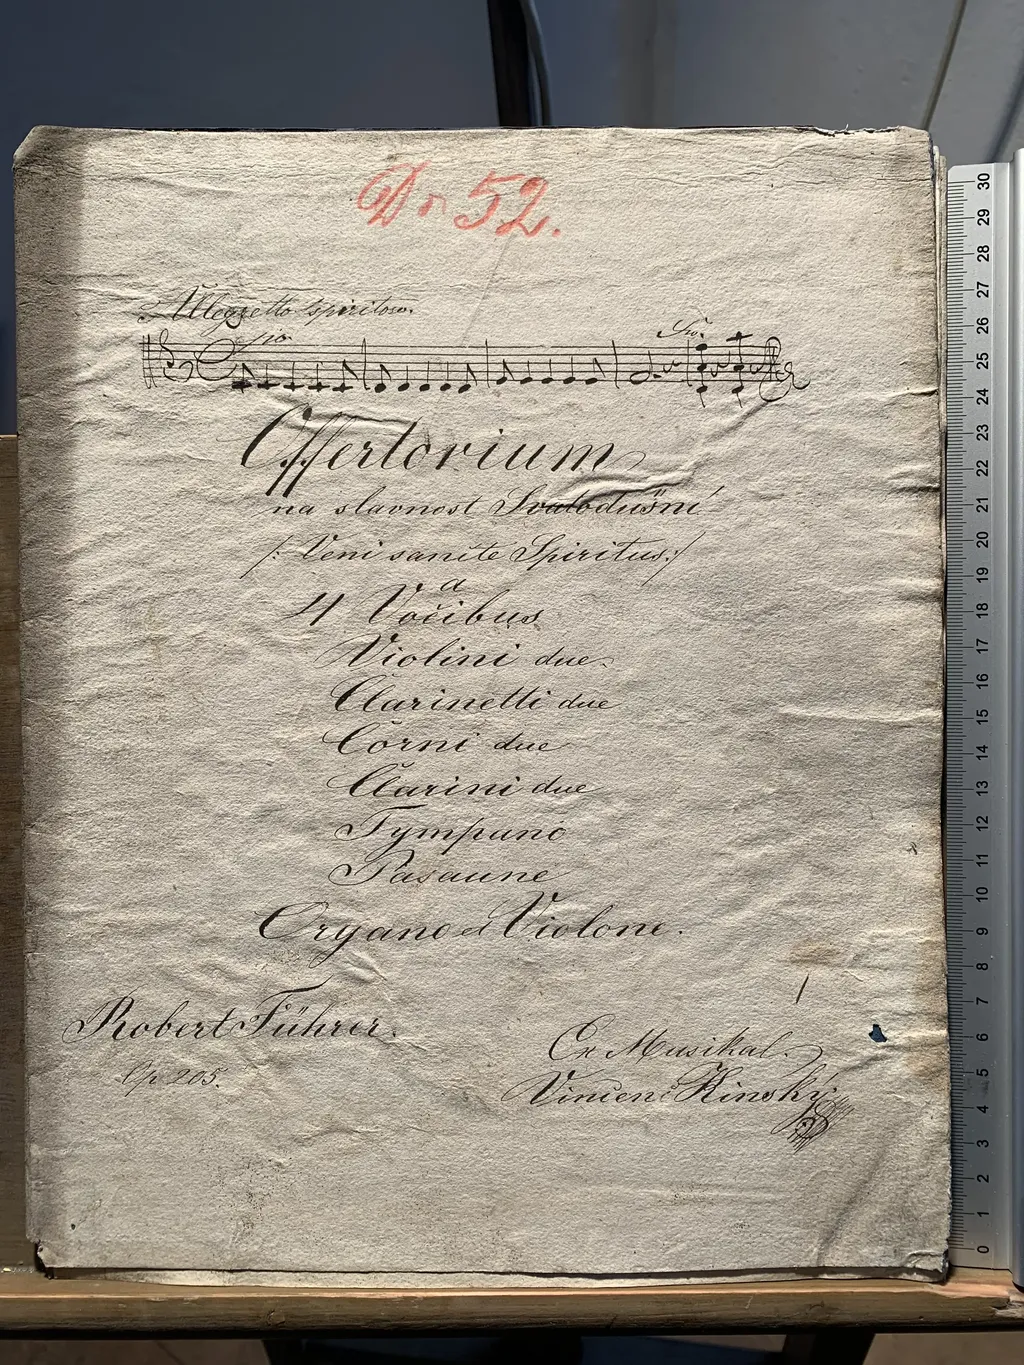 No 52.
Allegretto spiritoso.
pio
Fto.
Offertorium
na slavnost Svatodušní
/: Veni sancte Spiritus :/
a
4 Vocibus
Violini due.
Clarinetti due
Corni due
Clarini due
Tympano
Pasaune
Organo et Violone.
Robert Führer.
Op 205.
Ex Musikal.
Vincenc Kinský
30
29
28
27
26
25
24
23
22
21
20
19
18
17
16
15
14
13
12
11
10
9
8
7
6
5
4
3
2
1
0